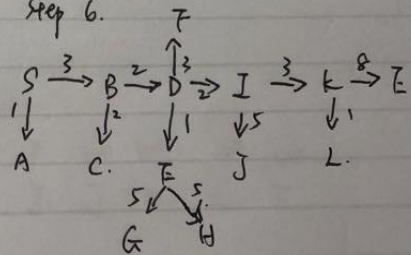 Step 6.
F
S 3 B 2 D 3 2 I 3 K 8 E
1 2 1 5 1
A C. E J L.
5 5.
G H